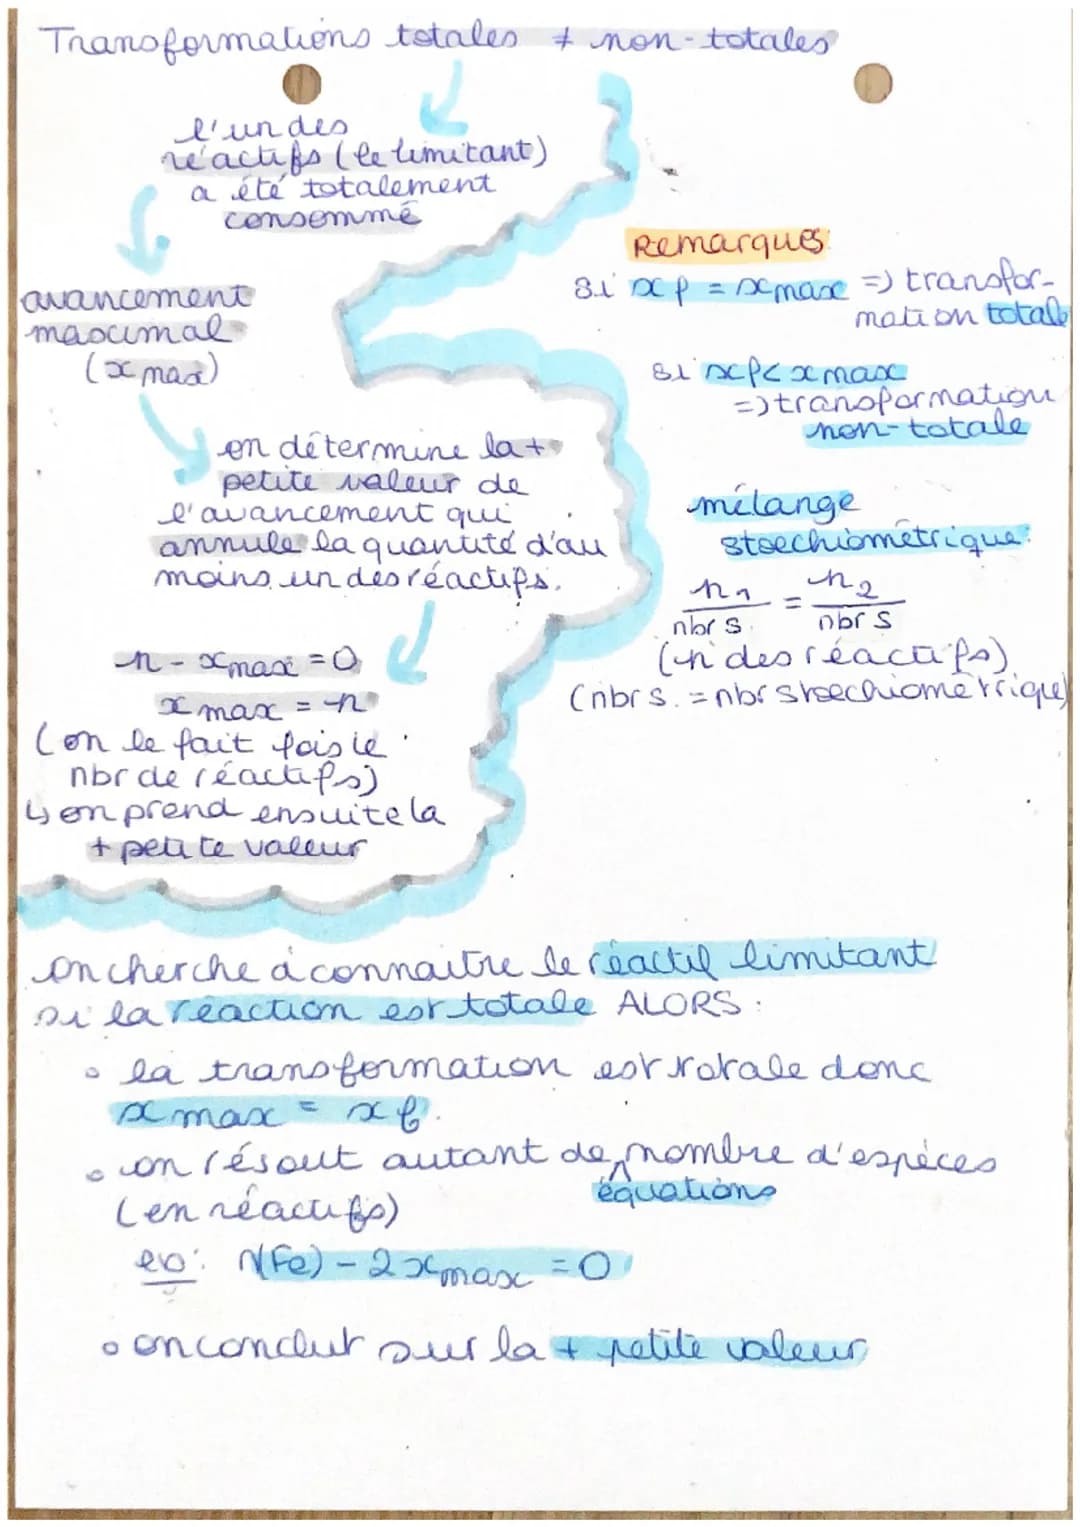 Transformations totales ≠ non-totales
l'un des
réactifs (le limitant)
a été totalement
consommé
avancement
maximal
(x max)
on détermine la +
petite valeur de
l'avancement qui
annule la quantité d'au
moins un des réactifs.
n - xmax = 0
x max = n
(on le fait fois le
nbr de réactifs)
↳ on prend ensuite la
+ petite valeur
Remarques:
si xf = xmax => transfor-
mation totale
si xf < xmax
=> transformation
non-totale
mélange
stoechiométrique:
n1/nbr s. = n2/nbr s
(n des réactifs)
(nbr s. = nbr stoechiométrique)
on cherche à connaitre le réactif limitant
si la réaction est totale ALORS :
• la transformation est totale donc
x max = xf.
• on résout autant de nombre d'espèces
équations
(en réactifs)
ex: N(Fe) - 2xmax = 0
• on conclut sur la + petite valeur